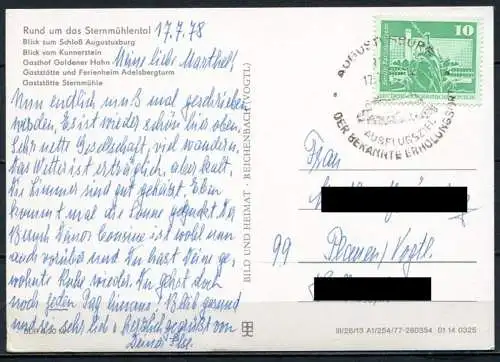 Rund um das Sternmühlental
Blick zum Schloß Augustusburg
Blick vom Kunnerstein
Gasthof Goldener Hahn
Gaststätte und Ferienheim Adelsbergturm
Gaststätte Sternmühle
17.7.78
Meine liebe Marthel!
Nun endlich muß mal geschrieben
werden. Es ist wieder schön hier oben.
Sehr nette Gesellschaft, viel wandern.
Das Wetter ist erträglich, aber kalt.
Die Zimmer sind gut geheizt. Eben
kommt mal die Sonne geguckt. Der
Besuch Deiner Cousine ist wohl nun
auch vorüber und Du hast Deine ge-
wohnte Ruhe wieder. Du gehst doch
noch jeden Tag hinaus? Bleib gesund
und sei sehr lieb u. herzlich gegrüßt von
Deiner
BILD UND HEIMAT · REICHENBACH (VOGTL)
10
AUGUSTUSBURG
AUSFLUGSZIEL
DER BEKANNTE ERHOLUNGSORT
Frau
99 Plauen/Vogtl.
III/26/13 A1/254/77-280354 01 14 0325